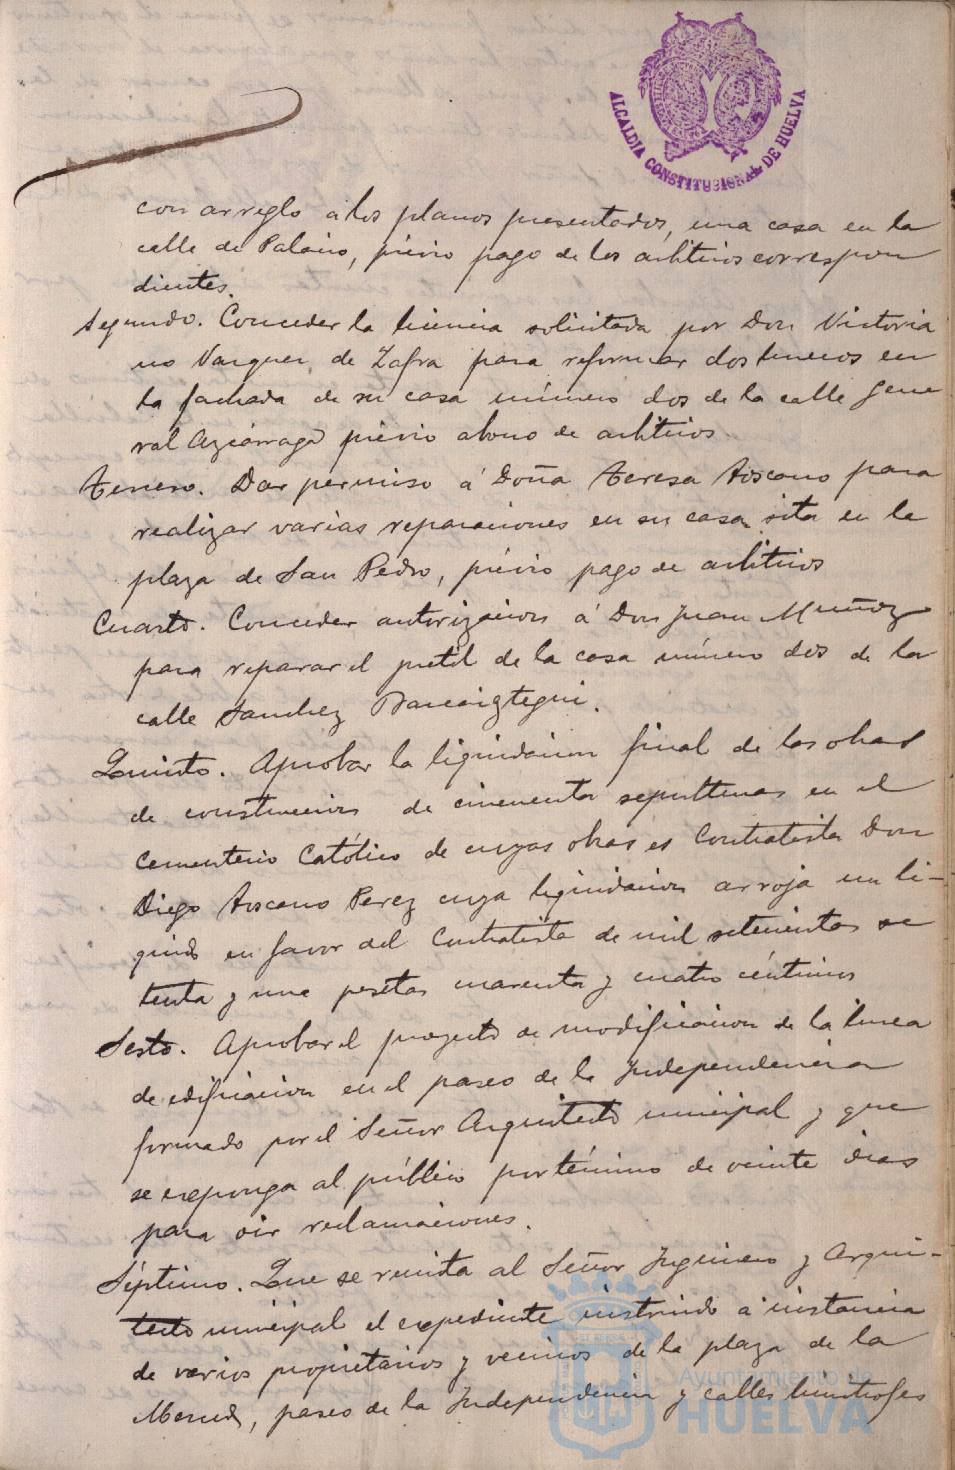 ALCALDIA CONSTITUCIONAL DE HUELVA
con arreglo a los planos presentados, una casa en la
calle de Palacio, prévio pago de los arbitrios correspon
dientes.
Segundo. Conceder la licencia solicitada por Don Victoria
no Vazquez de Zafra para reformar dos huecos en
la fachada de su casa número dos de la calle Gene
ral Azcárraga prévio abono de arbitrios.
Tercero. Dar permiso á Doña Teresa Toscano para
realizar varias reparaciones en su casa sita en la
plaza de San Pedro, prévio pago de arbitrios
Cuarto. Conceder autorizacion á Don Juan Muñoz
para reparar el pretil de la casa número dos de la
calle Sanchez Barcaiztegui.
Quinto. Aprobar la liquidacion final de las obras
de construccion de cincuenta sepulturas en el
Cementerio Católico de cuyas obras es Contratista Don
Diego Toscano Perez cuya liquidacion arroja un lí-
quido en favor del Contratista de mil setecientas se
tenta y una pesetas cuarenta y cuatro céntimos
Sesto. Aprobar el proyecto de modificacion de la linea
de edificacion en el paseo de la Independencia
formado por el Señor Arquitecto municipal y que
se exponga al público por término de veinte dias
para oir reclamaciones.
Séptimo. Que se remita al Señor Ingeniero y Arqui-
tecto municipal el expediente instruido a instancia
de varios propietarios y vecinos de la plaza de la
Merced, paseo de la Independencia y calles limitrofes
Ayuntamiento de
HUELVA